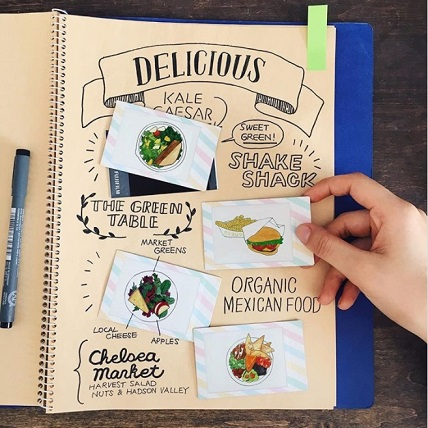 DELICIOUS
KALE
CAESAR
SWEET
GREEN!
SHAKE
SHACK
FUJIFILM
THE GREEN
TABLE
MARKET
GREENS
LOCAL
CHEESE
APPLES
ORGANIC
MEXICAN FOOD
Chelsea
Market
HARVEST SALAD
NUTS & HADSON VALLEY